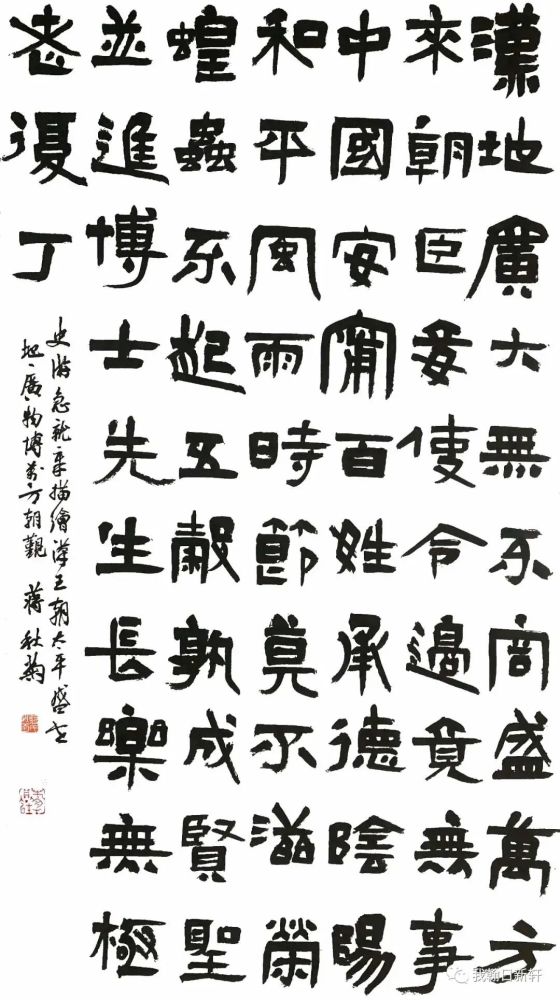 漢地廣大無不容盛萬方
來朝臣妾使令邊竟無事
中國安寧百姓承德陰陽
和平風雨時節莫不滋榮
蝗蟲不起五穀孰成賢聖
並進博士先生長樂無極
老復丁
史游急就章描繪漢王朝太平盛世
地廣物博萬方朝覲 蔣秋
我翰日新轩